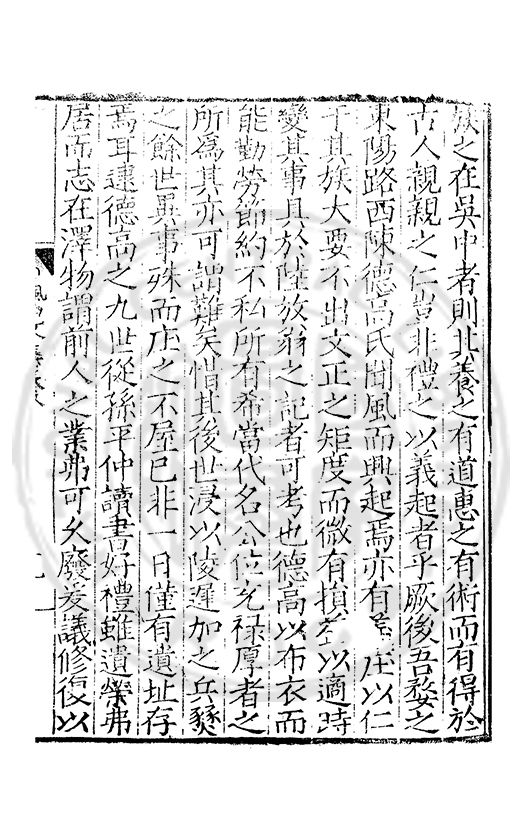 族之在吳中者則其養之有道惠之有術而有得於
古人親親之仁豈非禮之以義起者乎厥後吾婺之
東陽路西陳德高氏聞風而興起焉亦有義庄以仁
于其族大要不出文正之矩度而微有損益以適時
變其事具於陸放翁之記者可考也德高以布衣而
能勤勞節約不私所有希當代名公位充祿厚者之
所爲其亦可謂難矣惜其後世浸以陵遲加之兵燹
之餘世異事殊而庄之不屋已非一日僅有遺址存
焉耳逮德高之九世從孫平仲讀書好禮雖遺榮弗
居而志在澤物謂前人之業弗可久廢爰議修復以